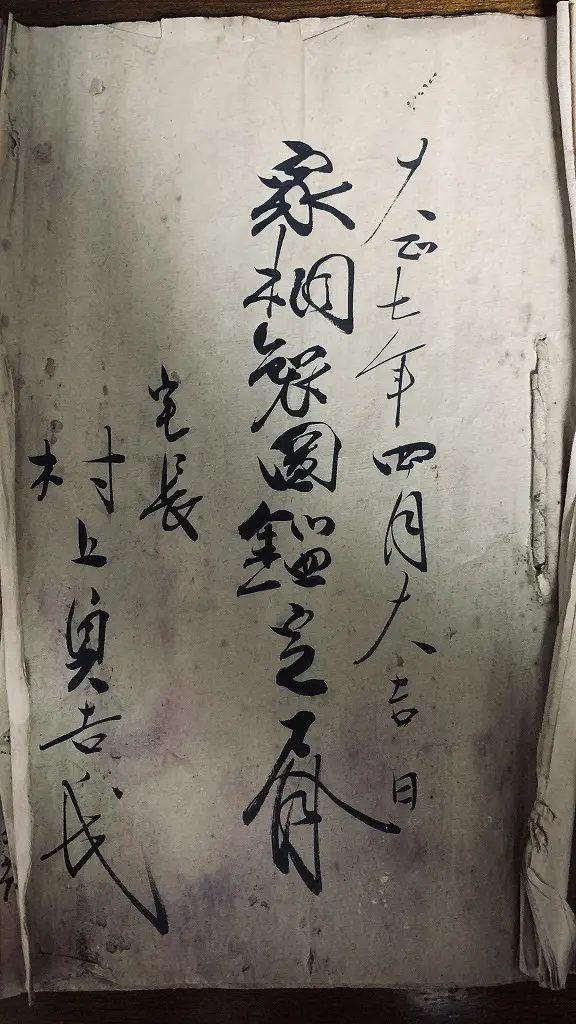 大正七年四月大吉日
家相製圖鑑定
宅長
村上吉氏